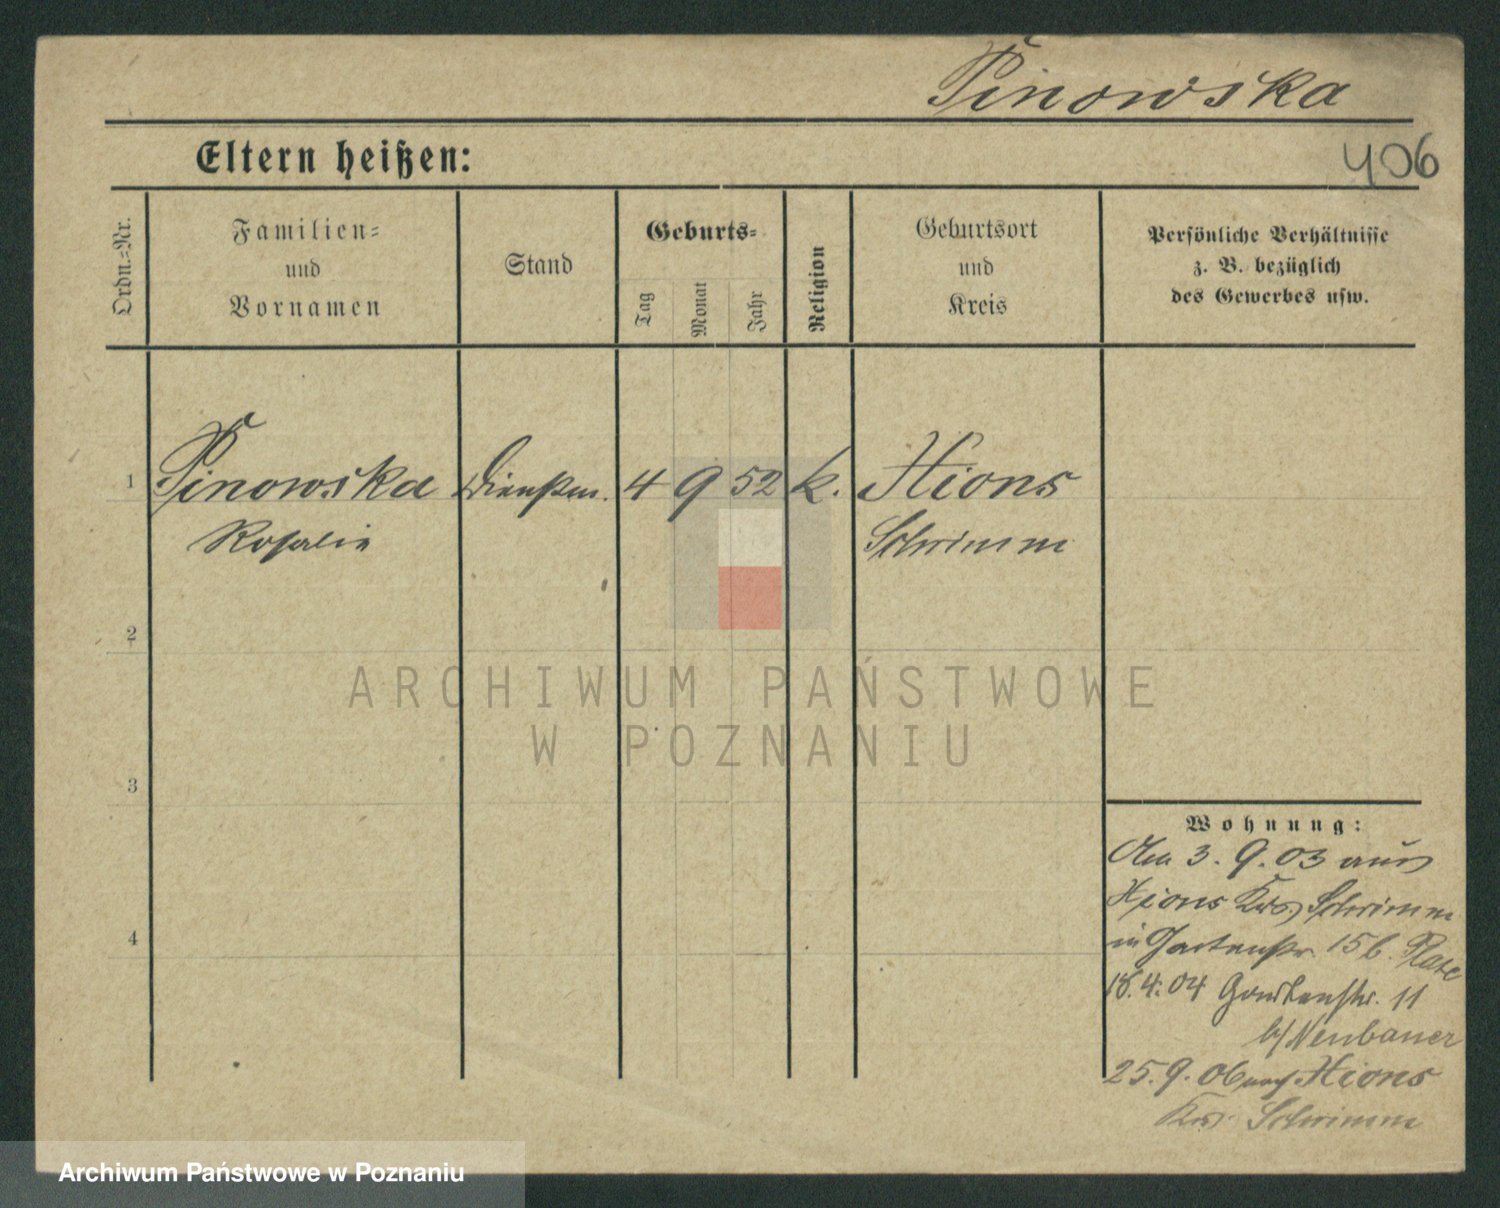 Pinowska
Eltern heißen:
406
Ordn.-Nr.
Familien-
und
Vornamen
Stand
Geburts-
Tag
Monat
Jahr
Religion
Geburtsort
und
Kreis
Persönliche Verhältnisse
z. B. bezüglich
des Gewerbes usw.
1 Pinowska Dienstm. 4 9 52 k. Xions
Rosalie Schrimm
2
3
4
ARCHIWUM PAŃSTWOWE
W POZNANIU
Wohnung:
Am 3. 9. 03 aus
Xions Krs. Schrimm
in Gartenstr. 15 b.
18. 4. 04 Gartenstr. 11
b/ Neubauer
25. 9. 06 nach Xions
Krs. Schrimm
Archiwum Państwowe w Poznaniu